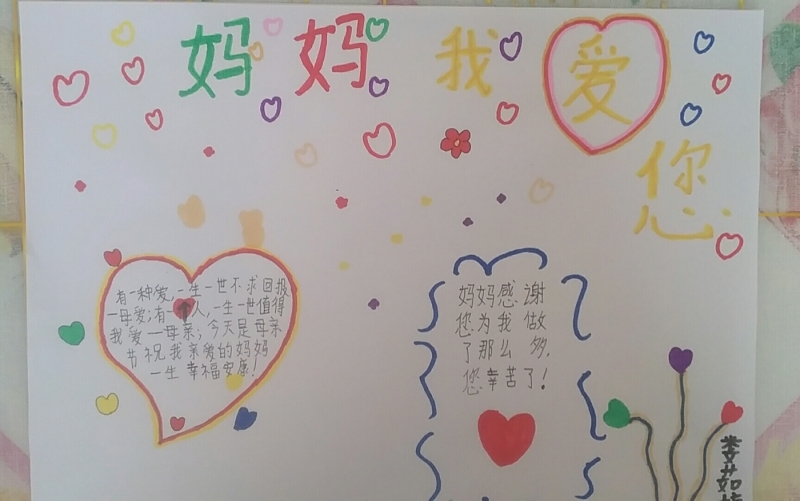 妈妈 我 爱
您
有一种爱,一生一世不求回报
一母爱;有一个人,一生一世值得
我爱一母亲;今天是母亲
节祝我亲爱的妈妈
一生幸福安康!
妈妈感谢
您为我做
了那么多,
您幸苦了!